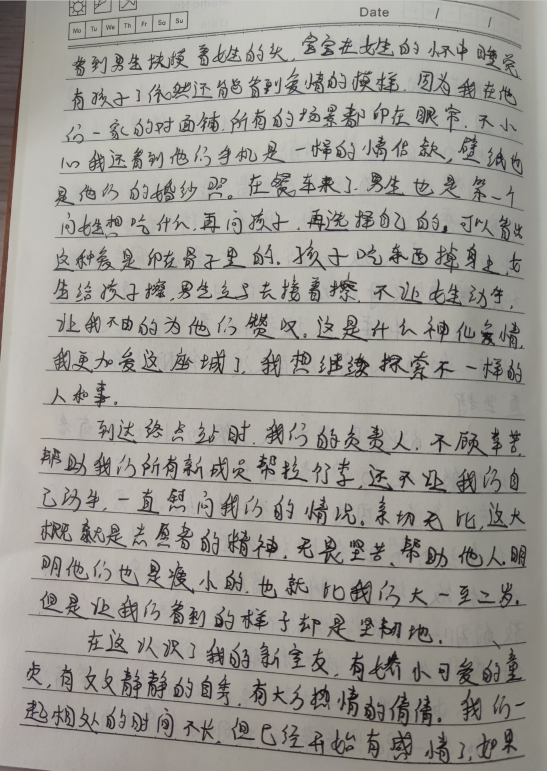 Date / /
Mo Tu We Th Fr Sa Su
看到男生抚摸着女生的头,宝宝在女生的怀中睡觉
有孩子了依然还能看到爱情的模样。因为我在他
们一家的对面铺,所有的场景都印在眼帘。不小
心我还看到他们手机是一样的情侣款,壁纸也
是他们的婚纱照。在餐车来了,男生也是第一个
问女生想吃什么,再问孩子,再选择自己的。可以看出
这种爱是印在骨子里的。孩子吃东西掉身上,女
生给孩子擦,男生立马去接着擦,不让女生动手,
让我不由的为他们赞叹。这是什么神仙爱情,
我更加爱这座城了,我想继续探索不一样的
人和事。
到达终点站时,我们的负责人,不顾辛苦,
帮助我们所有新成员帮拉行李,还不让我们自
己动手,一直慰问我们的情况。亲切无比,这大
概就是志愿者的精神,无畏坚苦、帮助他人,明
明他们也是瘦小的,也就比我们大一至二岁。
但是让我们看到的样子却是坚韧地。
在这认识了我的新室友,有娇小可爱的童
贞,有文文静静的自秀,有大方热情的倩倩。我们一
起相处的时间不长,但已经开始有感情了,如果